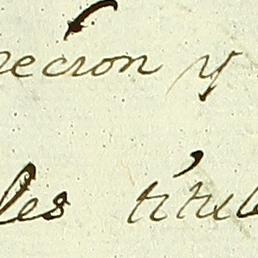 recion y
les titule